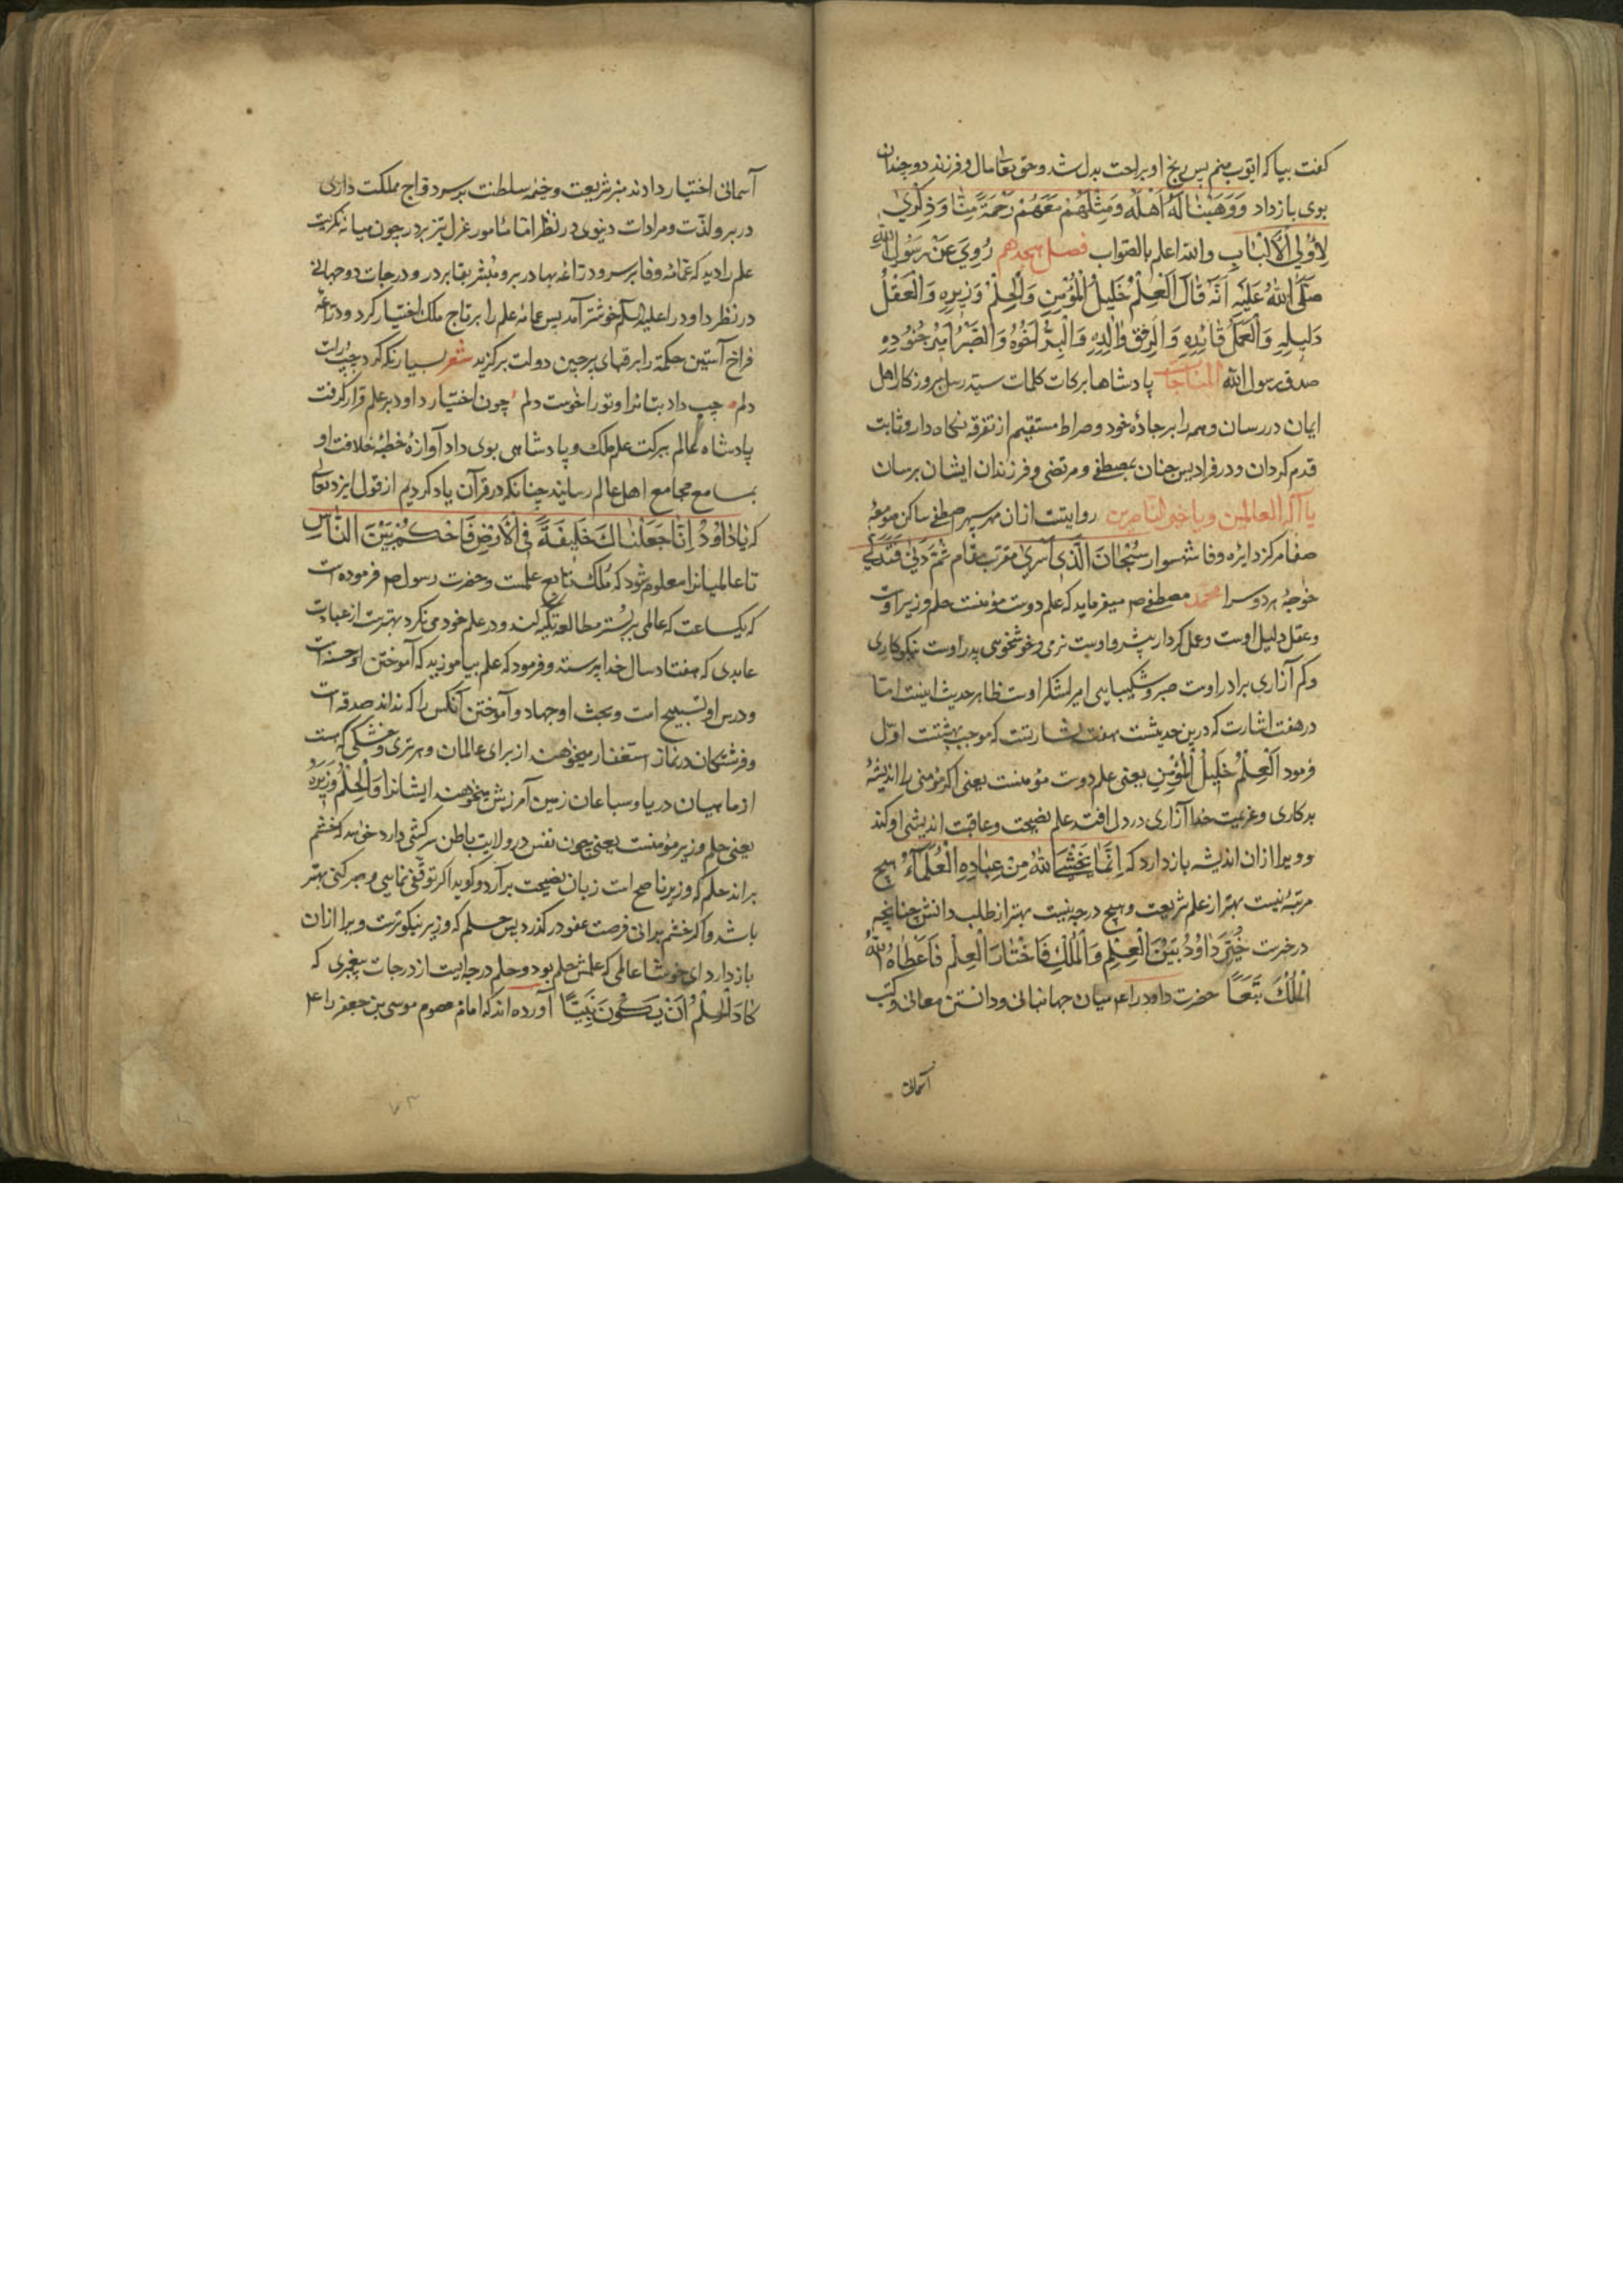 کفت بیا که ایوب منم پس رنج او براحت بدل شد و حق تعا مال و فرزند دوچندان
بوی باز داد وَوَهَبْنَا لَهُ اَهْلَهُ وَمِثْلَهُمْ مَعَهُمْ رَحْمَةً مِنَّا وَذِكْرَي
لِاُولِي الْاَلْبَابِ والله اعلم بالصواب فصل هجدهم رُوِيَ عَنْ رَسُولِ اللهِ
صَلَّي اللهُ عَلَيْهِ اَنَّهُ قَالَ اَلْعِلْمُ خَلِيلُ الْمُؤْمِنِ وَالْحِلْمُ وَزِيرِهِ وَالْعَقْلُ
دَلِيلِهِ وَالْعَمَلُ قَائِدِهِ وَالرِفْقُ وَالِدِهِ وَالْبِرُّ اَخُوهُ وَالصَّبْرُ اَمِيرُ جُنُودِهِ
صدق رسول الله المناجات پادشاها ببرکات کلمات سید رسل بروزکار اهل
ایمان در رسان و همه را بر جادهٔ خود و صراط مستقیم از تفرقه نکاه دار و ثابت
قدم کردان و در فرادیس جنان بمصطفی و مرتضی و فرزندان ایشان برسان
یا آله العالمین و یا خیر الناصرین روایتست از ان مهر سپهر اصطفی ساکن صومعهٔ
صفا مرکز دایره وفا شهسوار سُبْحَانَ الَّذِي اَسْرَي مقرب مقام ثُمَّ دَنَی فَتَدَلَّی
خواجهٔ هر دو سرا محمد مصطفی ص میفرماید که علم دوست مؤمنست حلم وزیر اوست
و عقل دلیل اوست و عمل کردار پیشرو اوست نرمی و خوشخویی پدر اوست نیکوکاری
و کم آزاری برادر اوست صبر و شکیبایی امیر لشکر اوست ظاهر حدیث اینست اما
در هفت اشارت که درین حدیثست هفت بشارتست که موجب بهشتست اول
فرمود اَلْعِلْمُ خَلِيلُ الْمُؤْمِنِ یعنی علم دوست مؤمنست یعنی اکر مؤمنی را اندیشهٔ
بدکاری و عزیمت خدا آزاری در دل افتد علم نصیحت و عاقبت اندیشی او کند
و ویرا ازان اندیشه باز دارد که اِنَّمَا يَخْشَي اللهَ مِنْ عِبَادِهِ الْعُلَمَآءُ هیچ
مرتبهٔ نیست بهتر از علم شریعت و هیچ درجه نیست بهتر از طلب دانش چنانچه
در خبرست خُيِّرَ دَاوُدُ بَيْنَ الْعِلْمِ وَالْمُلْكِ فَاخْتَارَ الْعِلْمَ فَاَعْطَاهُ اللهُ
الْمُلْكَ تَبَعًا حضرت داود را ع میان جهانبانی و دانستن معانی و کتب
آسمانی
آسمانی اختیار دادند منبر شریعت و خیمه سلطنت بر سر و تاج مملکت داری
در بر و لذت و مرادات دنیوی در نظر اما مامور غزل بتر بر در چون میانه نکریست
علم را دید که عمامه وفا بر سر و دراعه بها در بر و مبشر بقا بر در و درجات دوجهانی
در نظر داود را علیه السلم خوشتر آمد پس عمامه علم را بر تاج ملک اختیار کرد و دراعه
فراخ آستین حکمة را بر قبای پرچین دولت برکزید شعر بسیار نکه کرد چپ و راست
دلم چپ داد بتانرا و تو را خواست دلم چون اختیار داود بر علم قرار کرفت
پادشاه عالم ببرکت علم ملک و پادشاهی بوی داد آوازهٔ خطبهٔ خلافت او
بمسامع مجامع اهل عالم رسانید چنانکه در قرآن یاد کردیم از قول ایزد تعا
که يَا دَاوُدُ اِنَّا جَعَلْنَاكَ خَلِيفَةً فِي الْاَرْضِ فَاحْكُمْ بَيْنَ النَّاسِ
تا عالمیانرا معلوم شود که مُلک تابع علمست و حضرت رسول ص فرموده است
که یکساعت که عالمی بر بستر مطالعه تکیه کند و در علم خود می نکرد بهترست از عبادت
عابدی که هفتاد سال خدا پرستد و فرمود که علم بیاموزید که آموختن او حسنه است
و درس او تسبیح است و بحث او جهاد و آموختن آنکس را که نداند صدقه است
و فرشتکان در نماز استغفار میخواهند از برای عالمان و هر تری و خشکی که هست
از ماهیان دریا و سباعان زمین آمرزش میخواهند ایشانرا وَالْحِلْمُ وَزِيرُهُ
یعنی حلم وزیر مؤمنست یعنی چون نفس در ولایت باطن سرکشی دارد خواهد که خشم
براند حلم که وزیر ناصح است زبان نصیحت برآرد و کوید اکر توقفی نمایی و صبر کنی بهتر
باشد و اکر خشم برانی فرصت عفو درکذرد پس حلم که وزیر نیکوترست ویرا ازان
باز دارد ای خوشا عالمی که علمش حلم بود و حلم درجه ایست از درجات پیغمبری که
كَادَ الْحِلْمُ اَنْ يَكُونَ نَبِيًّا آورده اند که امام معصوم موسی بن جعفر را ع
۷۳